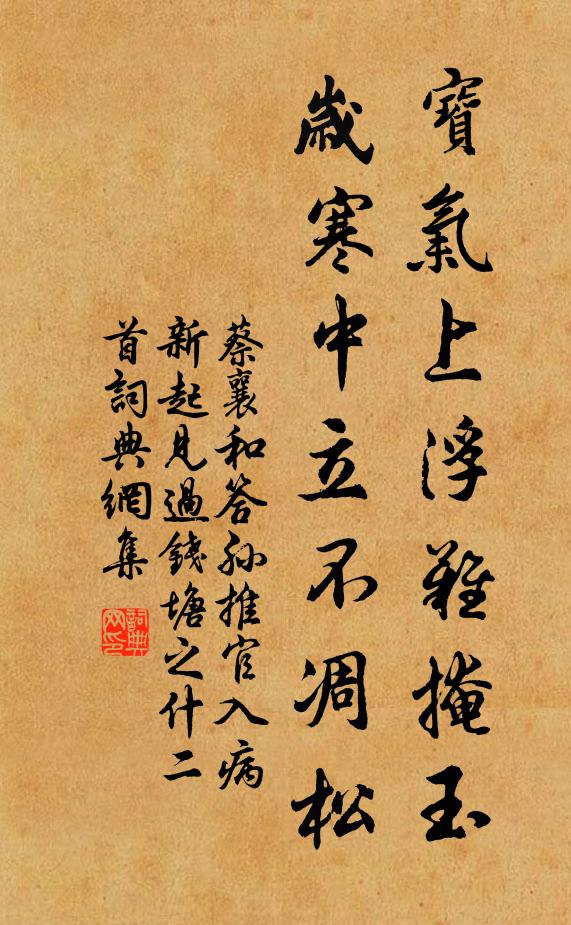 寶氣上浮難掩玉
歲寒中立不凋松
蔡襄和答孫推官入病
新起見過錢塘之什二
首詞典網集
詞典
网印